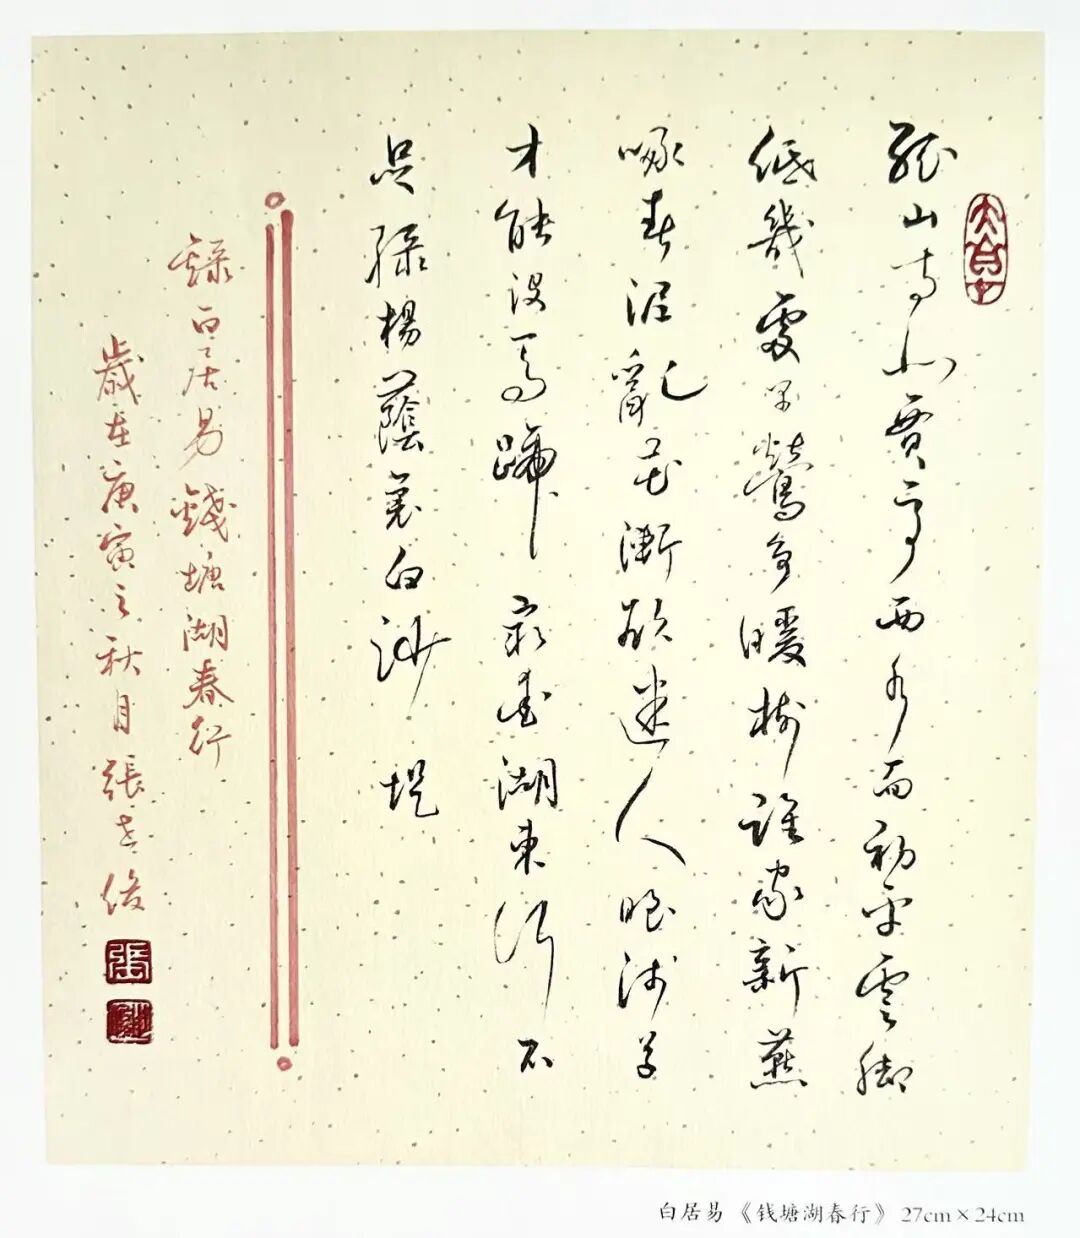 孤山寺北賈亭西水面初平雲脚
低幾處早鶯爭暖樹誰家新燕
啄春泥亂花漸欲迷人眼淺草
才能没馬蹄最愛湖東行不
足綠楊蔭裏白沙堤
錄白居易錢塘湖春行
歲在庚寅之秋月張俊
白居易《钱塘湖春行》27cm×24cm